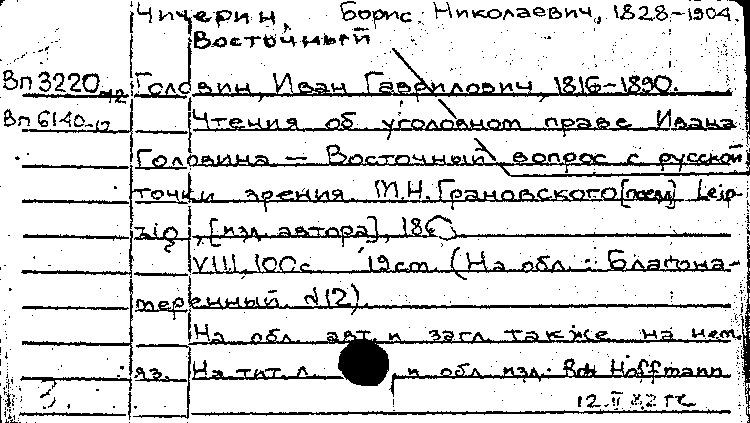 Чичерин, Борис Николаевич, 1828-1904.
Восточный
Вп 3220-42 Головин, Иван Гаврилович, 1816-1890.
Вп 6140-12 Чтения об уголовном праве Ивана
Головина — Восточный вопрос с русской
точки зрения. Т.Н. Грановского Leip-
zig, [изд. автора], 186
VIII, 100с 19см. (На обл.: Благона-
меренный. №12).
На обл. авт. и загл. также на нем.
яз. На тит. л. и обл. изд. Hoffmann
12.II 82 гс